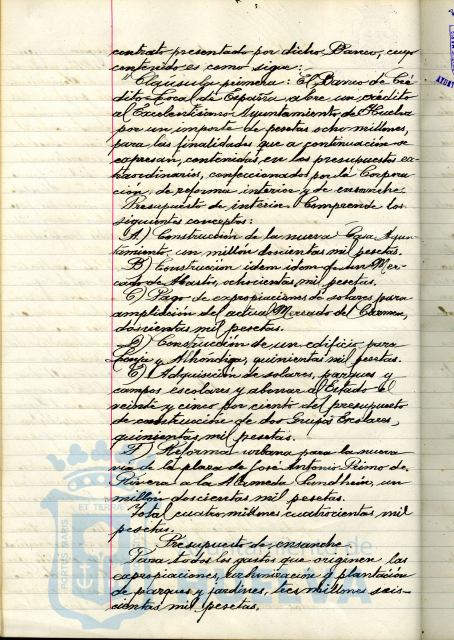 contrato presentado por dicho Banco, cuyo
contenido es como sigue:
"Cláusula primera: El Banco de Cré-
dito Local de España abre un crédito
al Excelentísimo Ayuntamiento de Huelva
por un importe de pesetas ocho millones,
para las finalidades que a continuación se
expresan, contenidas, en los presupuestos ex-
traordinarios, confeccionados, por la Corpora-
ción, de reforma interior y de ensanche.
Presupuesto de interior. Comprende los
siguientes conceptos:
A) Construcción de la nueva Casa Ayun-
tamiento, un millón doscientas mil pesetas.
B) Construcción idem idem de un Mer-
cado de Abastos, ochocientas mil pesetas.
C) Pago de expropiaciones de solares para
ampliación del actual Mercado del Carmen,
doscientas mil pesetas.
D) Construcción de un edificio para
Lonja y Alhóndiga, quinientas mil pesetas.
E) Adquisición de solares, parques y
campos escolares y abonar al Estado el
veinte y cinco por ciento del presupuesto
de construcción de dos Grupos Escolares,
quinientas mil pesetas.
F) Reforma urbana para la nueva
vía de la plaza de José Antonio Primo de
Rivera a la Alameda Sundheim, un
millón doscientas mil pesetas.
Total cuatro millones cuatrocientas mil
pesetas.
Presupuesto de ensanche
Para todos los gastos que originen las
expropiaciones, urbanización y plantación
de parques y jardines, tres millones seis-
cientas mil pesetas.
PORTUS MARIS
ET TERRAE
Ayuntamiento de
HUELVA